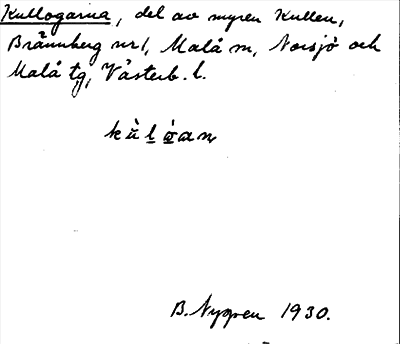 Kullogarna, del av myren Kullen,
Brännberg nr 1, Malå sn, Norsjö och
Malå tg, Västerb. l.
B. Nygren 1930.